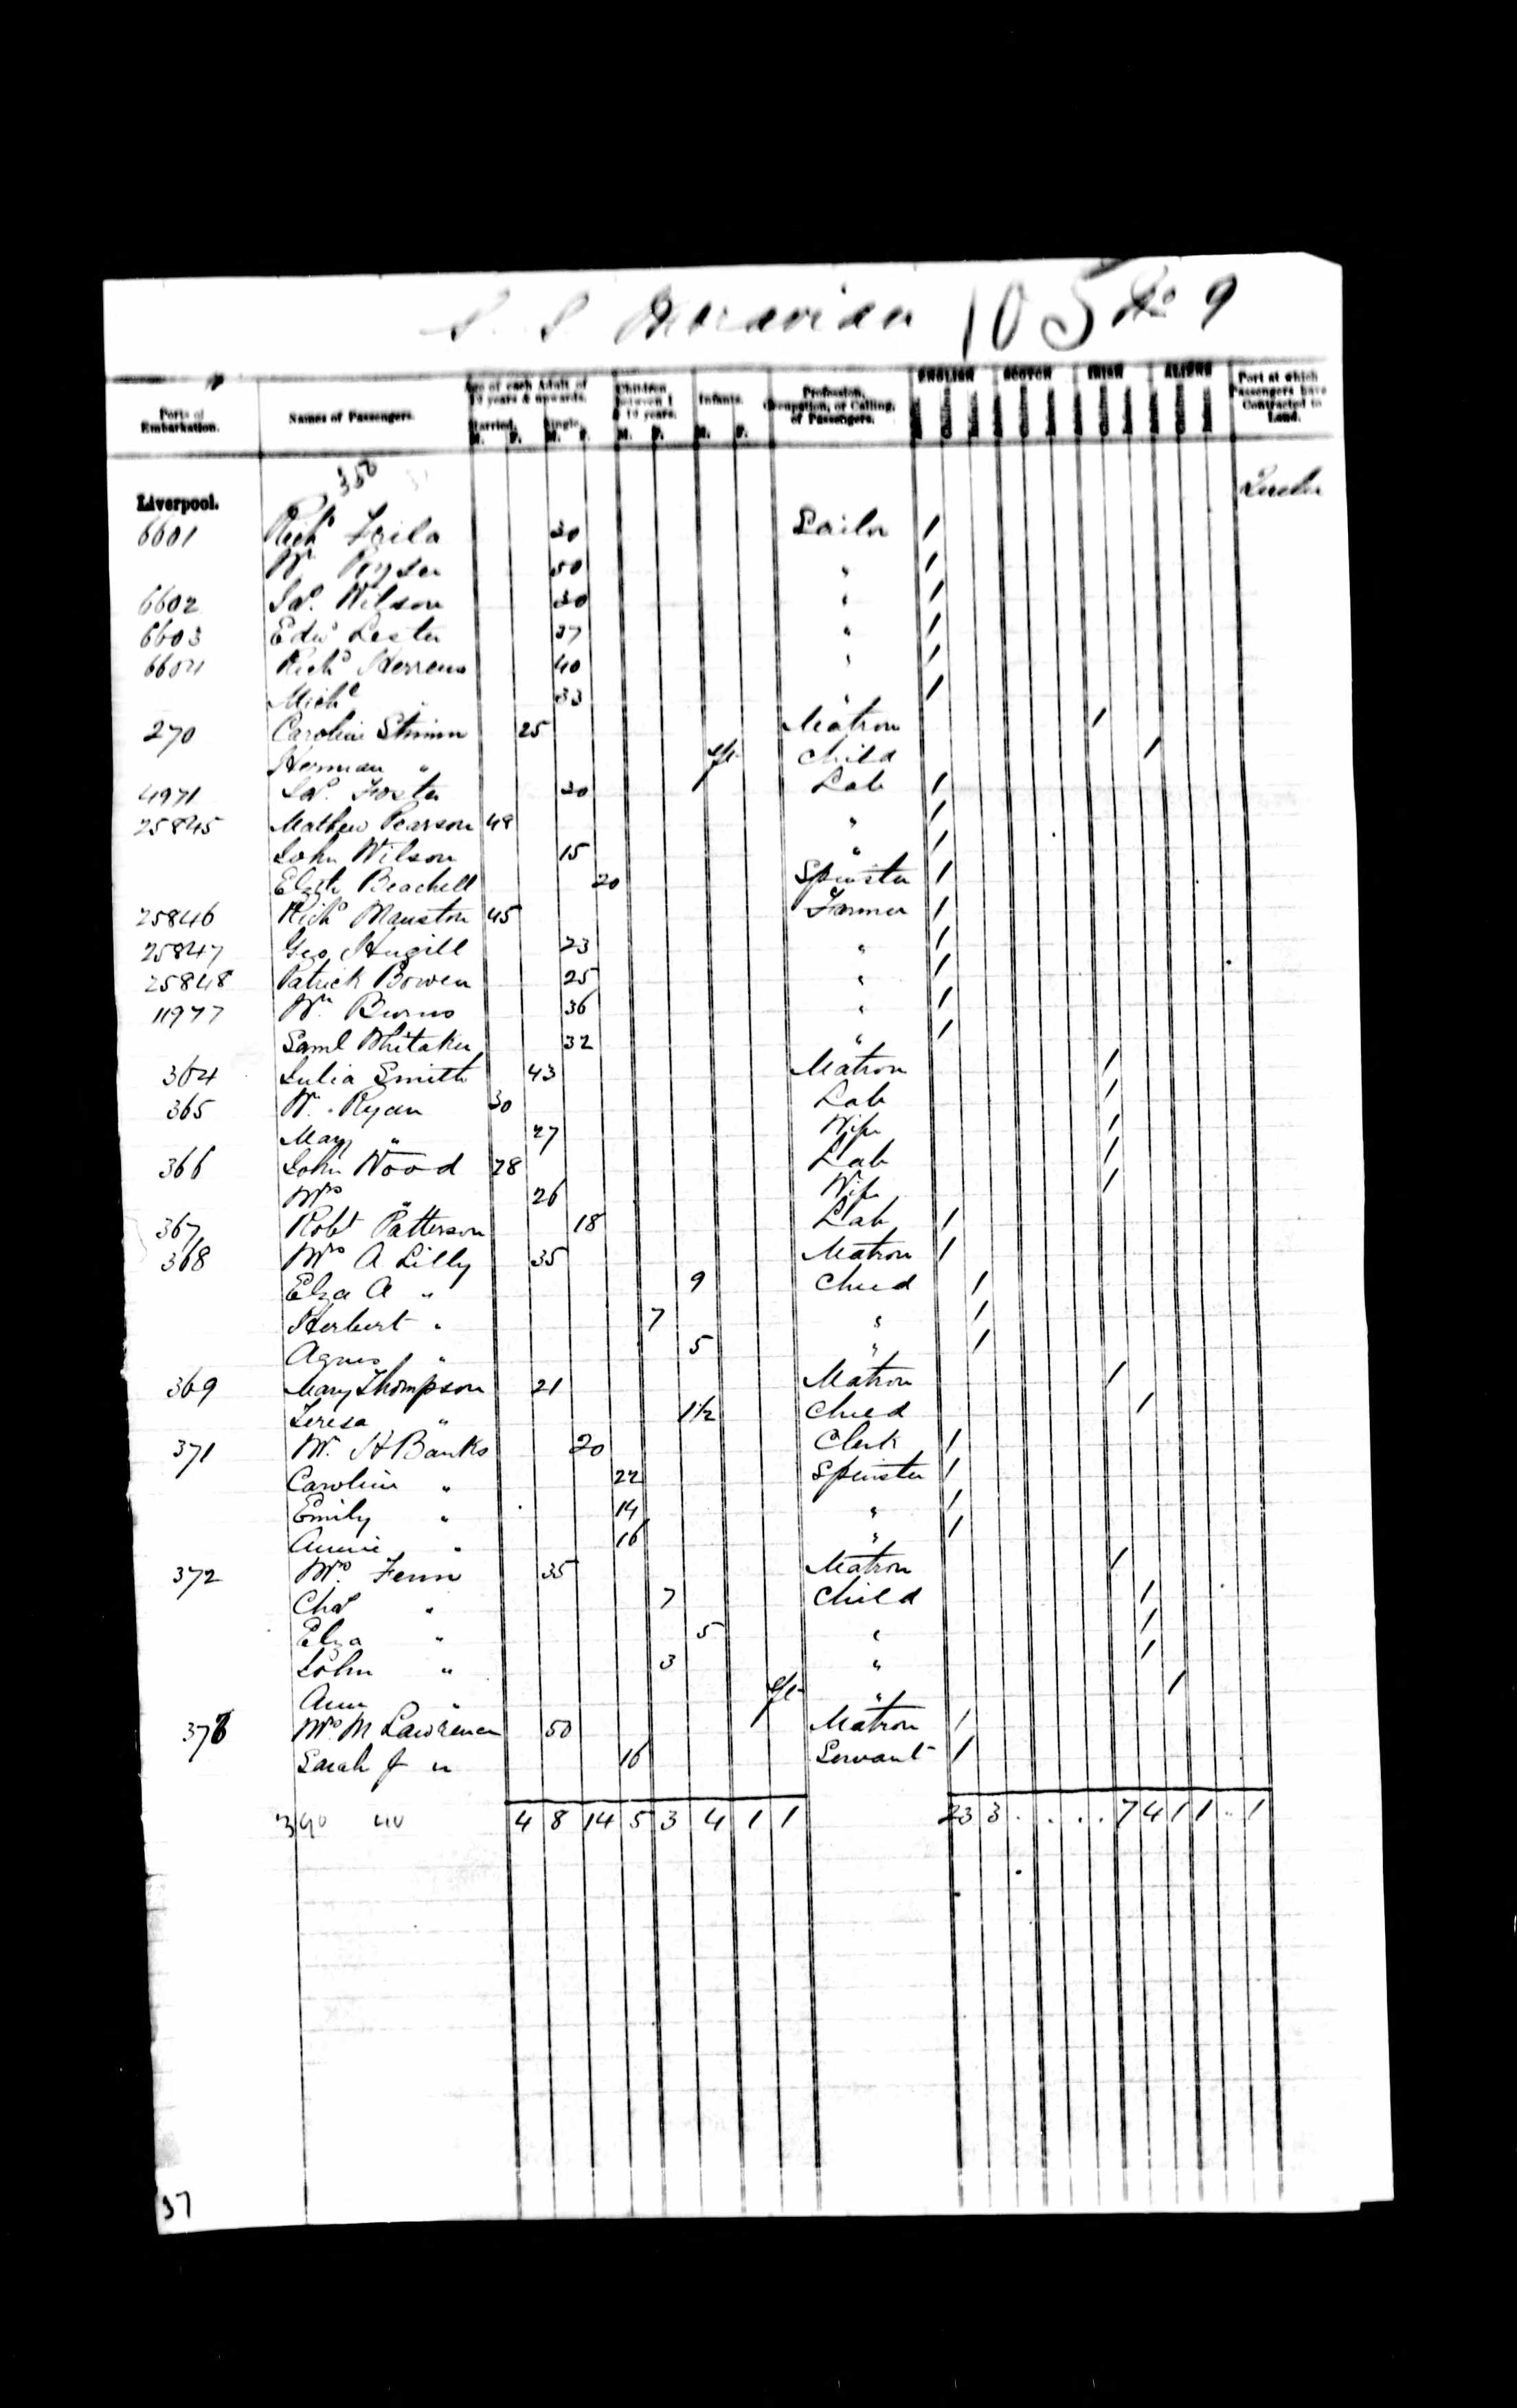 S. S. Moravian 105 No 9
Ports of Embarkation. Names of Passengers. Age of each Adult of 12 years & upwards. Married. M. F. Single. M. F. Children between 1 & 12 years. M. F. Infants. M. F. Profession, Occupation, or Calling, of Passengers. ENGLISH SCOTCH IRISH ALIENS Port at which Passengers have Contracted to Land.
350
Liverpool.
6601 Richd 30 Sailor 1
Wm 50 " 1
6602 Jas. Wilson 30 " 1
6603 Edwd Lester 37 " 1
6604 Richd 40 " 1
Michl 33 " 1
270 Caroline 25 Matron 1
Herman " Inft Child 1
4971 Jas. Foster 20 Lab 1
25845 Mathew Pearson 48 " 1
John Wilson 15 " 1
Elizth Beachell 20 Spinster 1
25846 Richd Manston 45 Farmer 1
25847 Geo Hugill 23 " 1
25848 Patrick Bowen 25 " 1
11977 Wm Burns 36 " 1
Saml Whitaker 32 " 1
364 Julia Smith 43 Matron 1
365 W. Ryan 30 Lab 1
Mary " 27 Wife 1
366 John Wood 28 Lab 1
Mrs " 26 Wife 1
367 Robt Patterson 18 Lab 1
368 Mrs A Lilly 35 Matron 1
Elza A " 9 Child 1
Herbert " 7 " 1
Agnes " 5 " 1
369 Mary Thompson 21 Matron 1
Teresa " 1½ Child 1
371 W. H Banks 20 Clerk 1
Caroline " 22 Spinster 1
Emily " 14 " 1
Annie " 16 " 1
372 Mrs. Fenn 35 Matron 1
Chas " 7 Child 1
Elza " 5 " 1
John " 3 " 1
Ann " Inft " 1
378 Mrs. M Lawrence 50 Matron 1
Sarah J " 16 Servant 1
390 40 4 8 14 5 3 4 1 1 23 3 . . . . 7 4 1 1 . 1
37